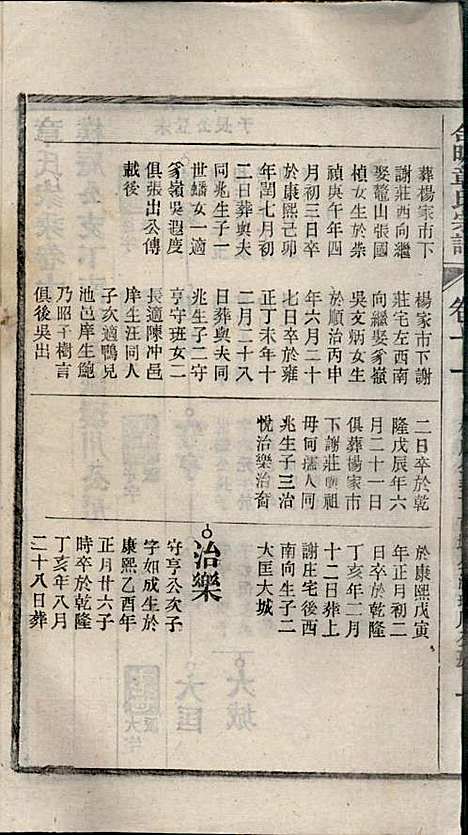 章氏宗譜
卷十一
葬楊家市下
謝莊西向繼
娶鼇山張國
楨女生於崇
禎庚午年四
月初三日卒
於康熙己卯
年閏七月初
二日葬與夫
同兆生子一
世蟠女一適
爹嶺吳遐度
俱張出公傳
載後
楊家市下謝
莊宅左西南
向繼娶爹嶺
吳文炳女生
於順治丙申
年六月二十
七日卒於雍
正丁未年十
二月二十八
日葬與夫同
兆生子二守
亨守班女二
長適陳冲邑
庠生汪同人
子次適鴨兒
池邑庠生鮑
乃昭子樹言
俱後吳出
二日卒於乾
隆戊辰年六
月二十一日
俱葬楊家市
下謝莊與祖
毋何孺人同
兆生子三治
悅治樂治奮
於康熙戊寅
年正月初二
日卒於乾隆
丁亥年二月
十二日葬上
謝庄宅後西
南向生子二
大匡大城
治樂
守亨公次子
字如成生於
康熙乙酉年
正月廿六子
時卒於乾隆
丁亥年八月
二十八日葬